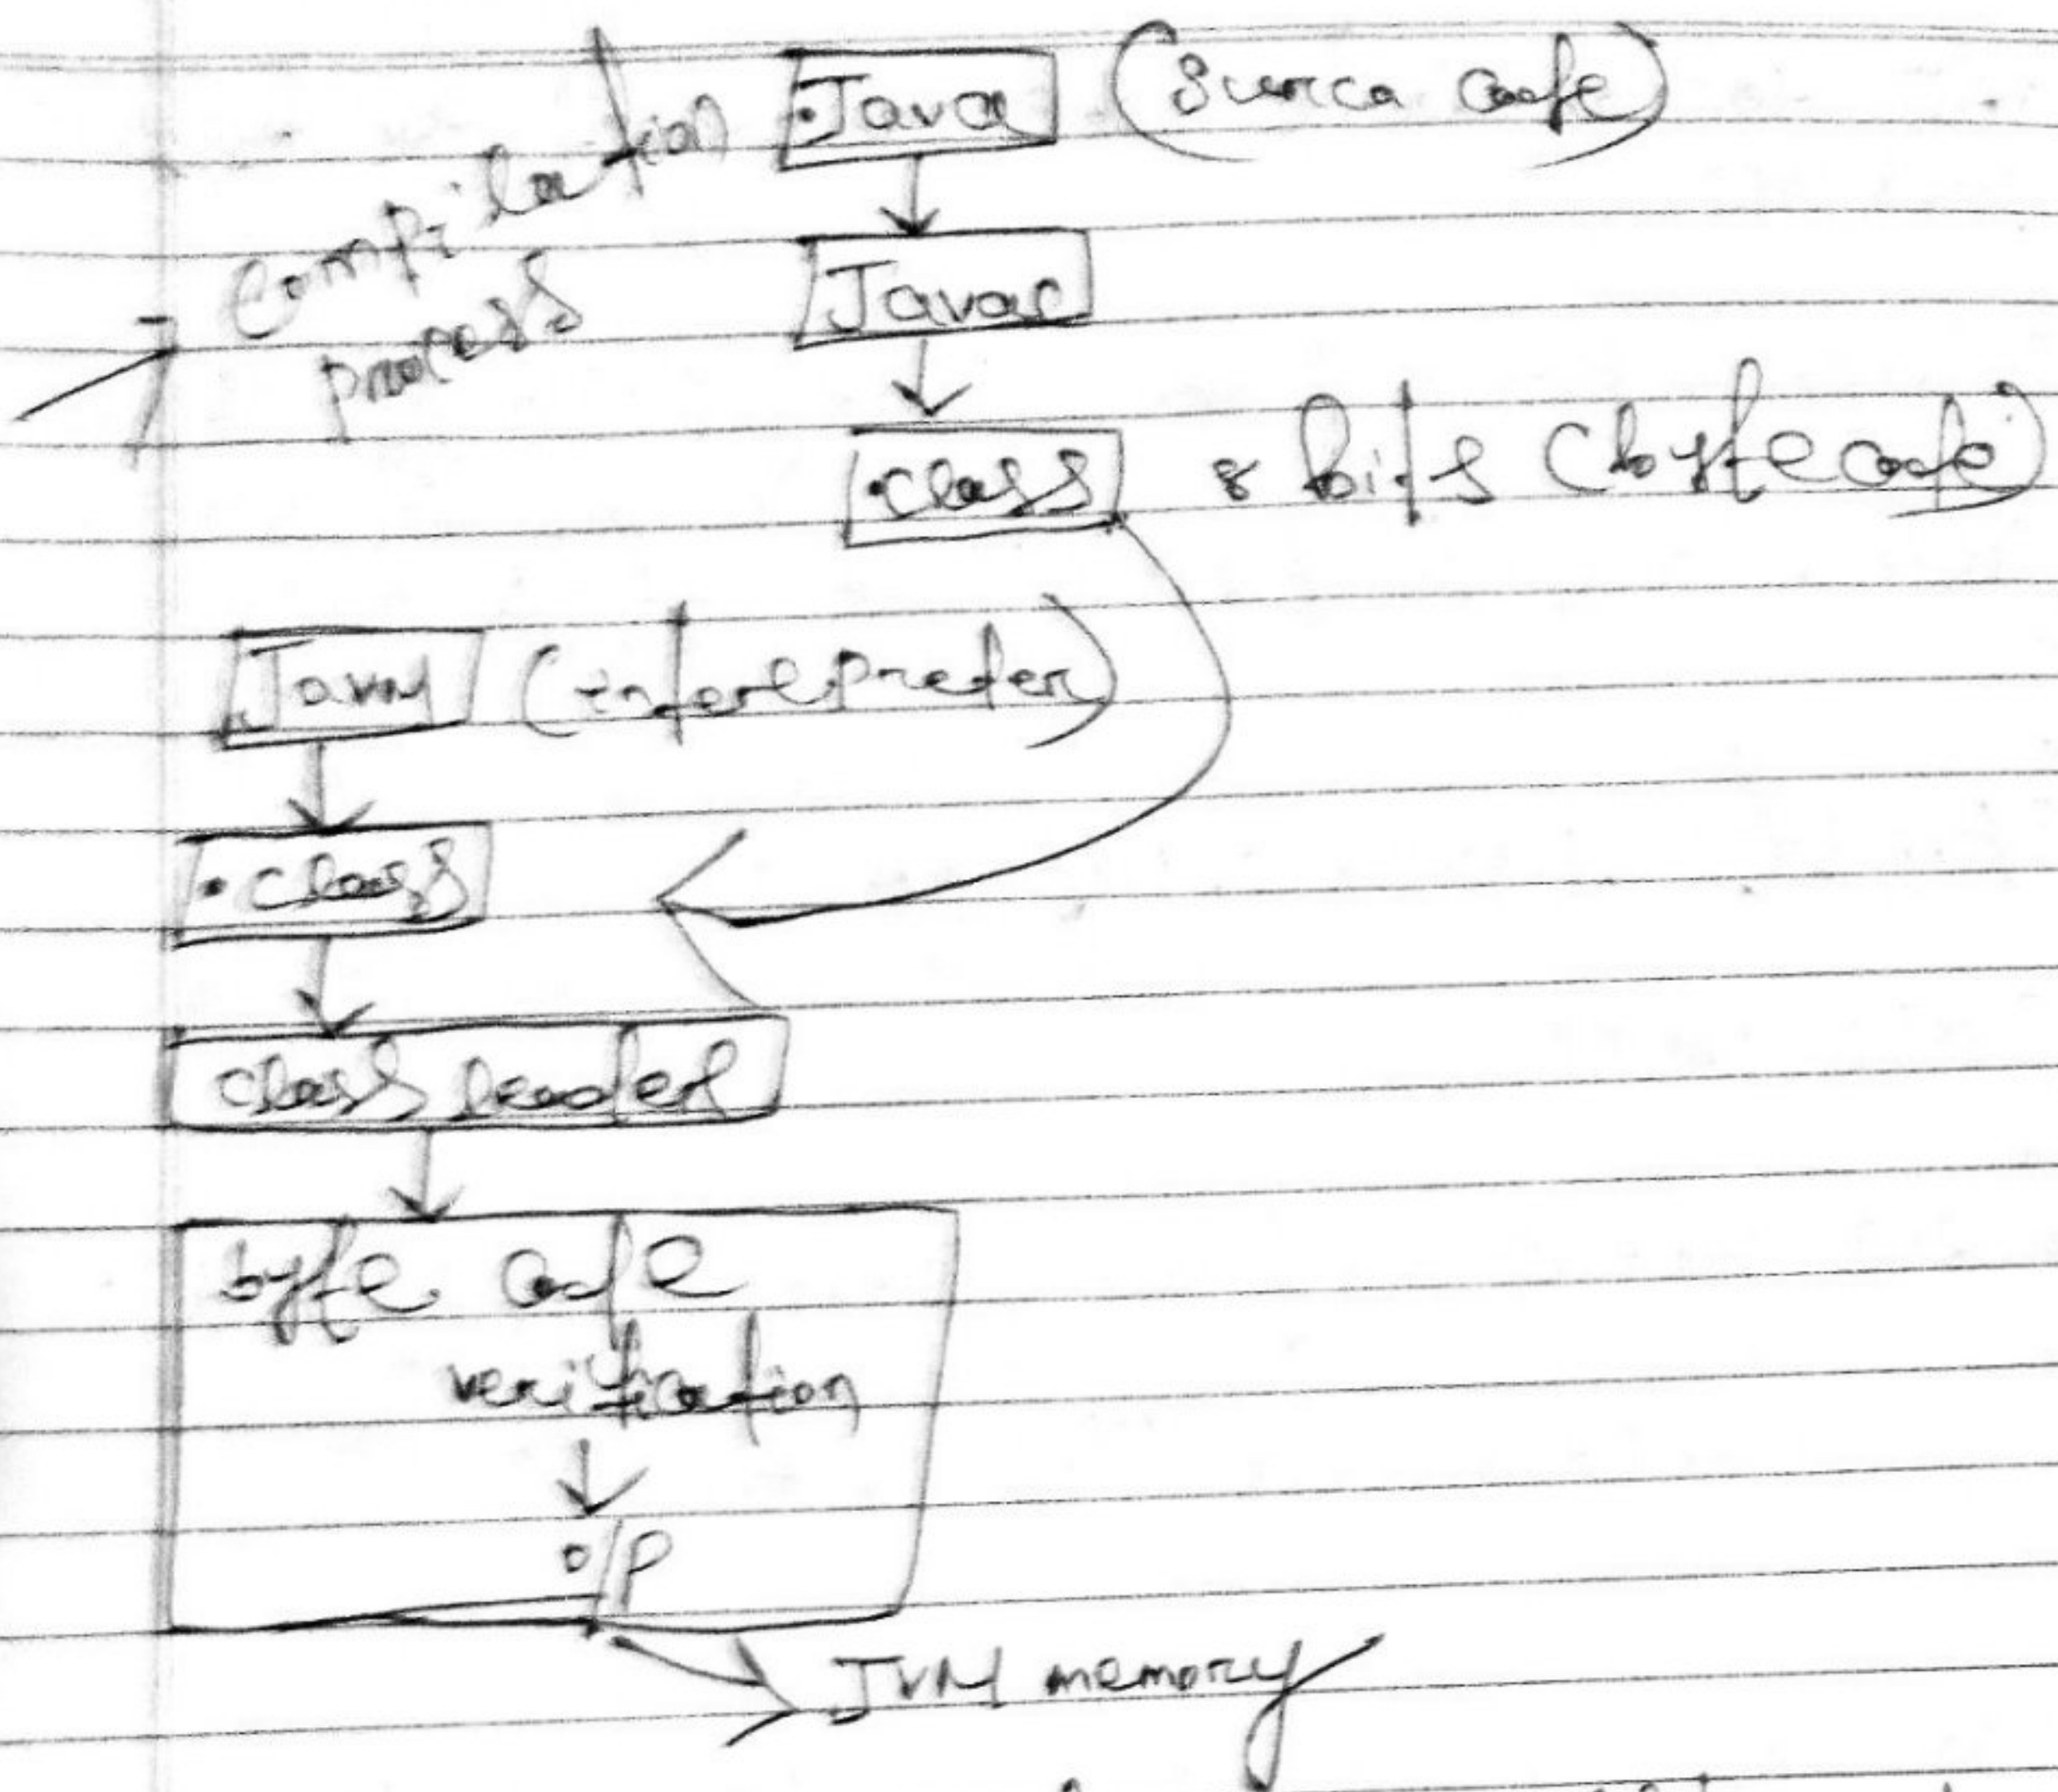 Compilation
process
.Java (Surca code)
Javac
.class 8 bits (bytecode)
(interepreter)
.class
class loader
byte code
verification
o/p
JVM memory